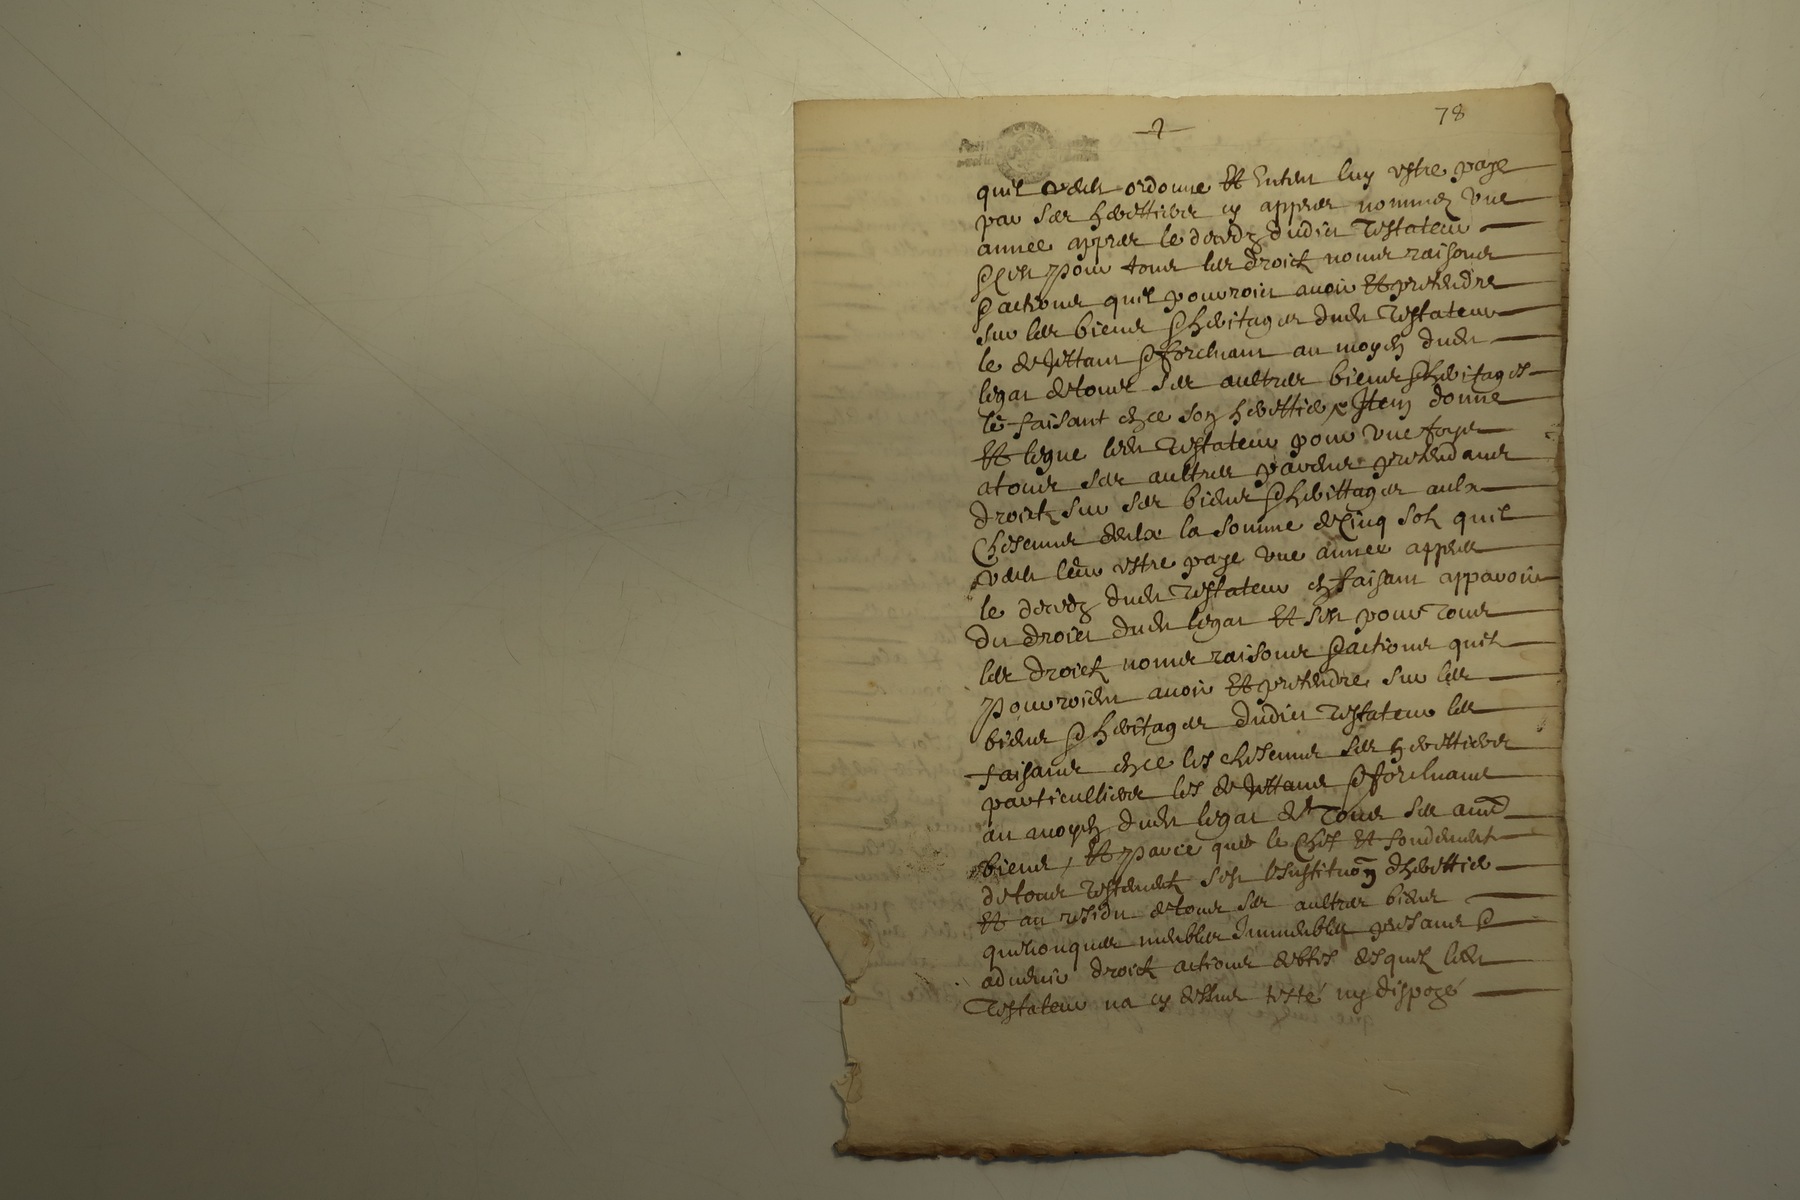 78
2
quil veult ordonne Et Entend luy estre paye
par ses herittiers cy appres nommez une
annee appres le decedz dudict Testateur
Et pour tous les droictz noms raisons
& actions quil pourroict avoir Et pretendre
sur les biens & heritages dudit Testateur
le & forcluant au moyen dudit
legat de tous ses aultres biens & heritages
le faisant en ce son herittier Item donne
Et legue ledit Testateur pour une foys
a tous ses aultres parens pretendans
droictz sur ses biens & herittages aulx
Chescuns deulx la somme de Cinq solz quil
veult leur estre paye une annee appres
le decedz dudit Testateur en faisant apparoir
du droict dudit legat Et pour tous
les droictz noms raisons & actions quilz
pourroient avoir Et pretendre sur les
biens & heritages dudict testateur les
faisans en ce les chescuns ses herittiers
particulliers les & forcluans
au moyen dudit legat de Tous ses autres
biens, Et parce que le Chef Et fondement
de tous testementz est lInstitution dherittier
Et au residu de tous ses aultres biens
quelconques meubles Immeubles presans &
advenir droictz actions debtes desquelz ledit
Testateur na cy dessus testé ny disposé